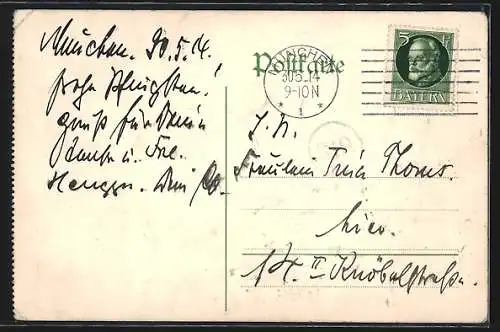 München. 30.5.14.
Frohe Pfingsten!
Gruß für Dein
Tante u. Frl.
Dein
Postkarte
MÜNCHEN
30.5.14
9-10N
1
5
BAYERN
S. H.
Fräulein Thoms.
hier.
II Knöbelstraße.